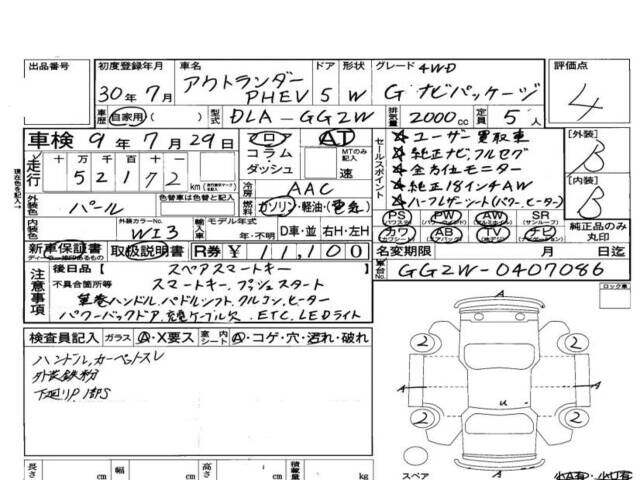 出品番号 初度登録年月 車名 ドア 形状 グレード 評価点
30年7月 アウトランダーPHEV 5 W 4WD G ナビパッケージ 4
車歴 自家用 ( ) 型式 DLA-GG2W 排気量 2000cc 定員 5人
車検 9年7月29日 フロア コラム ダッシュ AT MTのみ記入 速
走行 十 万 千 百 十 一
5 2 1 7 2 km
現在色を記入→
外装色 パール 色替車は色替と記入
冷房 AAC
燃料 ガソリン・軽油・(電気)
内装色 外装カラーNo. WI3 輸入車 モデル年式 年・不明 D車・並 右H・左H
セールスポイント
☆ユーザー買取車
☆純正ナビ,フルセグ
☆全方位モニター
☆純正18インチAW
☆ハーフレザーシート(パワー,ヒーター)
[外装] B
[内装] B
PS (パワステ) PW (パワーウインド) AW (アルミホイル) SR (サンルーフ)
カワ (カワシート) AB (エアバック) TV ナビ
純正品のみ丸印
新車保証書 取扱説明書 R券 ¥11,100
名変期限 月 日迄
車台No. GG2W-0407086
注意事項
後日品【 スペアスマートキー 】
不具合箇所等 スマートキー、プッシュスタート
革巻ハンドル,パドルシフト,クルコン,ヒーター
パワーバックドア,充電ケーブル欠,ETC,LEDライト
ロック車
検査員記入 ガラス A・X要ス 室内シート A・コゲ・穴・汚れ・破れ
ハンドル,カーペットスレ
外装鉄粉
下廻りP,1部S
2 2
A A
2 2
A
スペア
長さ cm 幅 cm 高さ cm 積載量 kg